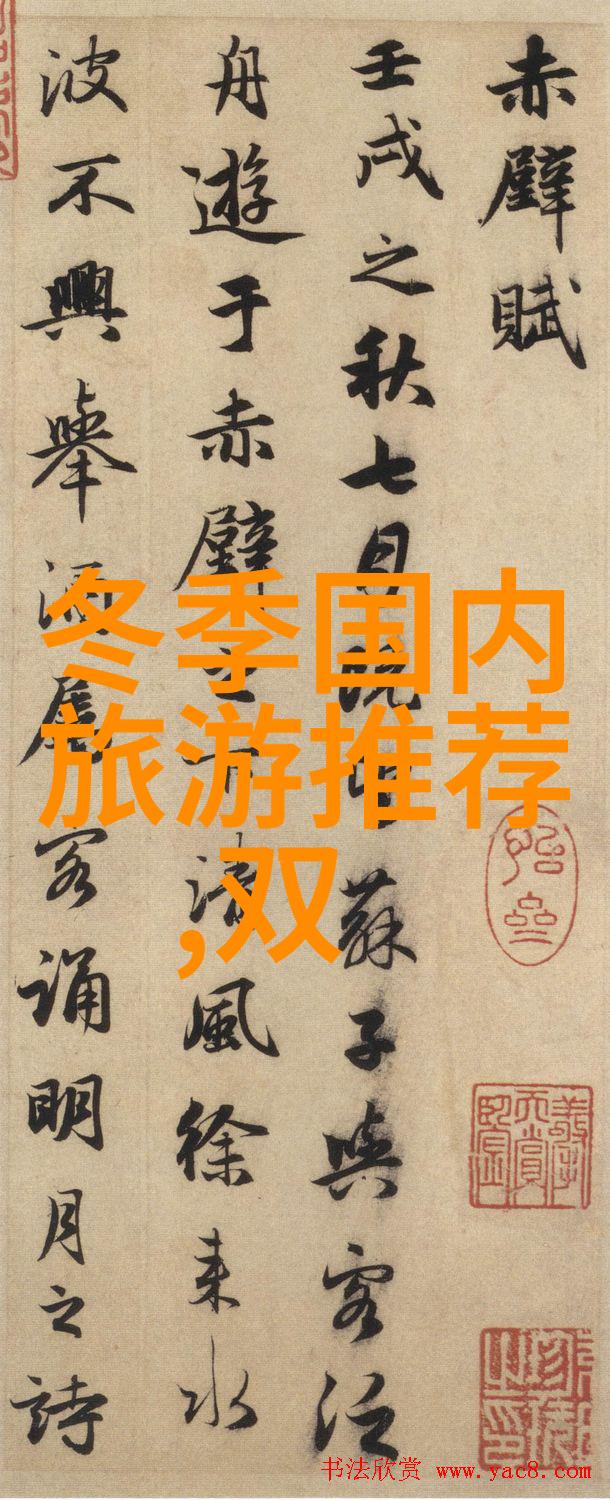 赤壁賦
壬戌之秋七月既望蘇子與客泛
舟遊于赤壁之下清風徐来水
波不興舉酒屬客誦明月之詩
冬季国内
旅游推荐
,双
书法欣赏 www.yac8.com